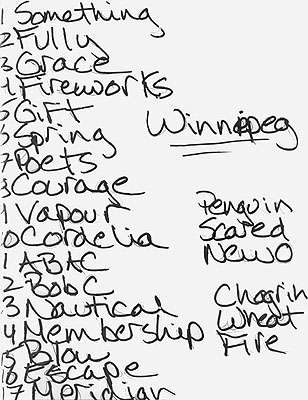 1 Something
2 Fully
3 Grace
4 Fireworks
5 Gift
6 Spring
7 Poets
8 Courage
9 Vapour
0 Cordelia
1 ABAC
2 BobC
3 Nautical
4 Membership
15 Blow
16 Escape
17 Meridian
Winnipeg
Penguin
Scared
New O
Chagrin
Wheat
Fire